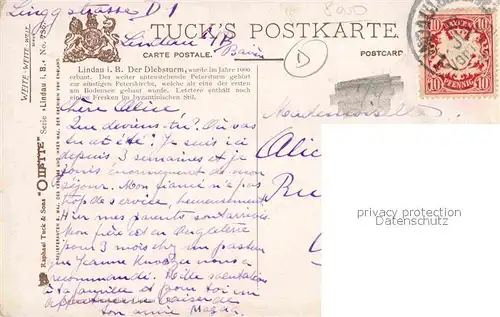 Linggstrasse D 1
Lindau i/B
Baiern
TUCK'S POSTKARTE.
CARTE POSTALE.
POSTCARD
Lindau i. B. Der Diebsturm, wurde im Jahre 1000
erbaut. Der weiter untenstehende Petersturm gehört
zur einstigen Peterskirche, welche als eine der ersten
am Bodensee gebaut wurde. Letztere enthält noch
einige Fresken im byzantinischen Stil.
Raphael Tuck & Sons "OILETTE" Serie "Lindau i. B." No.
10
10
PFENNIG
Mademoiselle
Chère Alice,
Que deviens-tu? Où vas
tu cet été? Je suis ici
depuis 3 semaines et je
jouis énormément de mon
séjour. Mon fiancé n'a pas
trop de service, heureusement
Hier mes parents sont arrivés
Mon frère est en Angleterre
pour 3 mois chez un pasteur
que Jeanne nous a
recommandé. Mille salutations
à ta famille et pour toi un
baiser de
ton amie Magda
Alic
Ru
privacy protection
Datenschutz